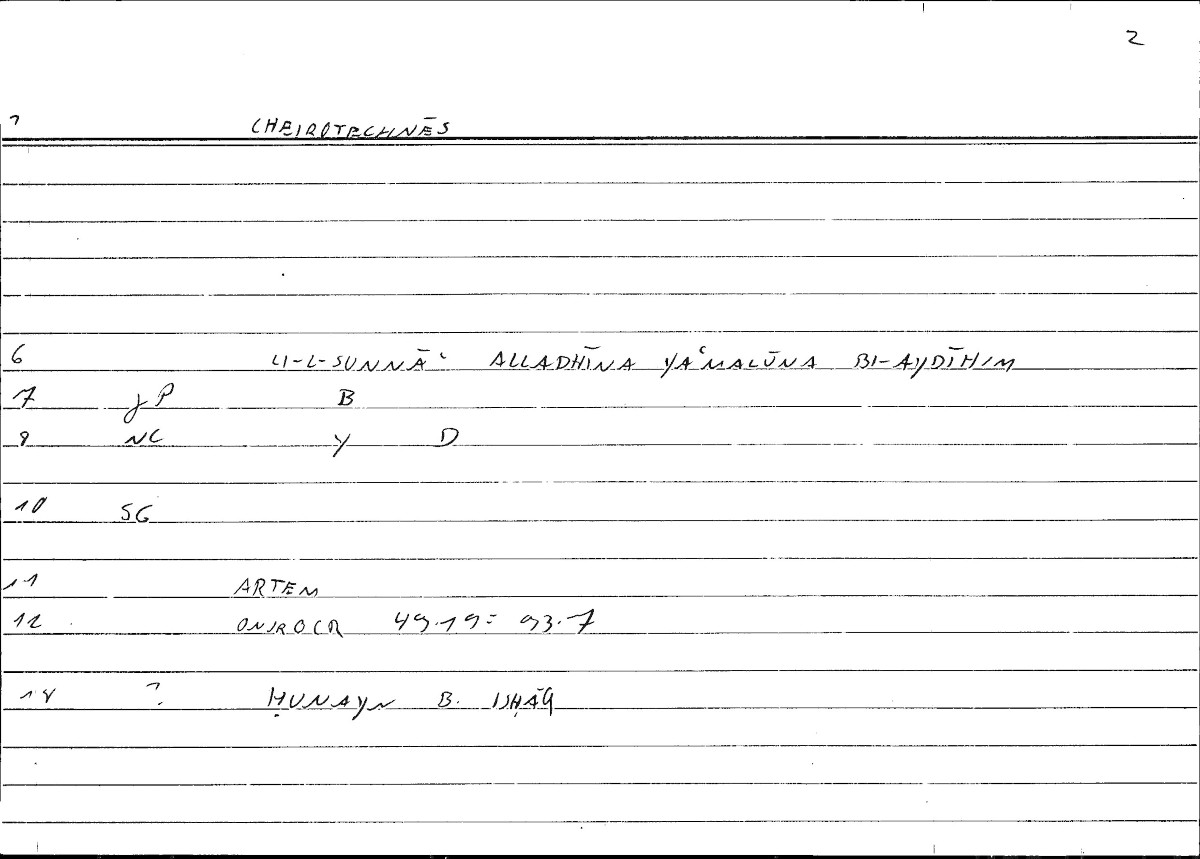 2
1 CHEIROTECHNĒS
6 LI-L-ṢUNNĀʿ ALLADHĪNA YAʿMALŪNA BI-AYDĪHIM
7 γP B
8 NC Y D
10 SG
11 ARTEM
12 ONIROCR 49.19 = 93.7
18 ? ḤUNAYN B. ISḤĀQ